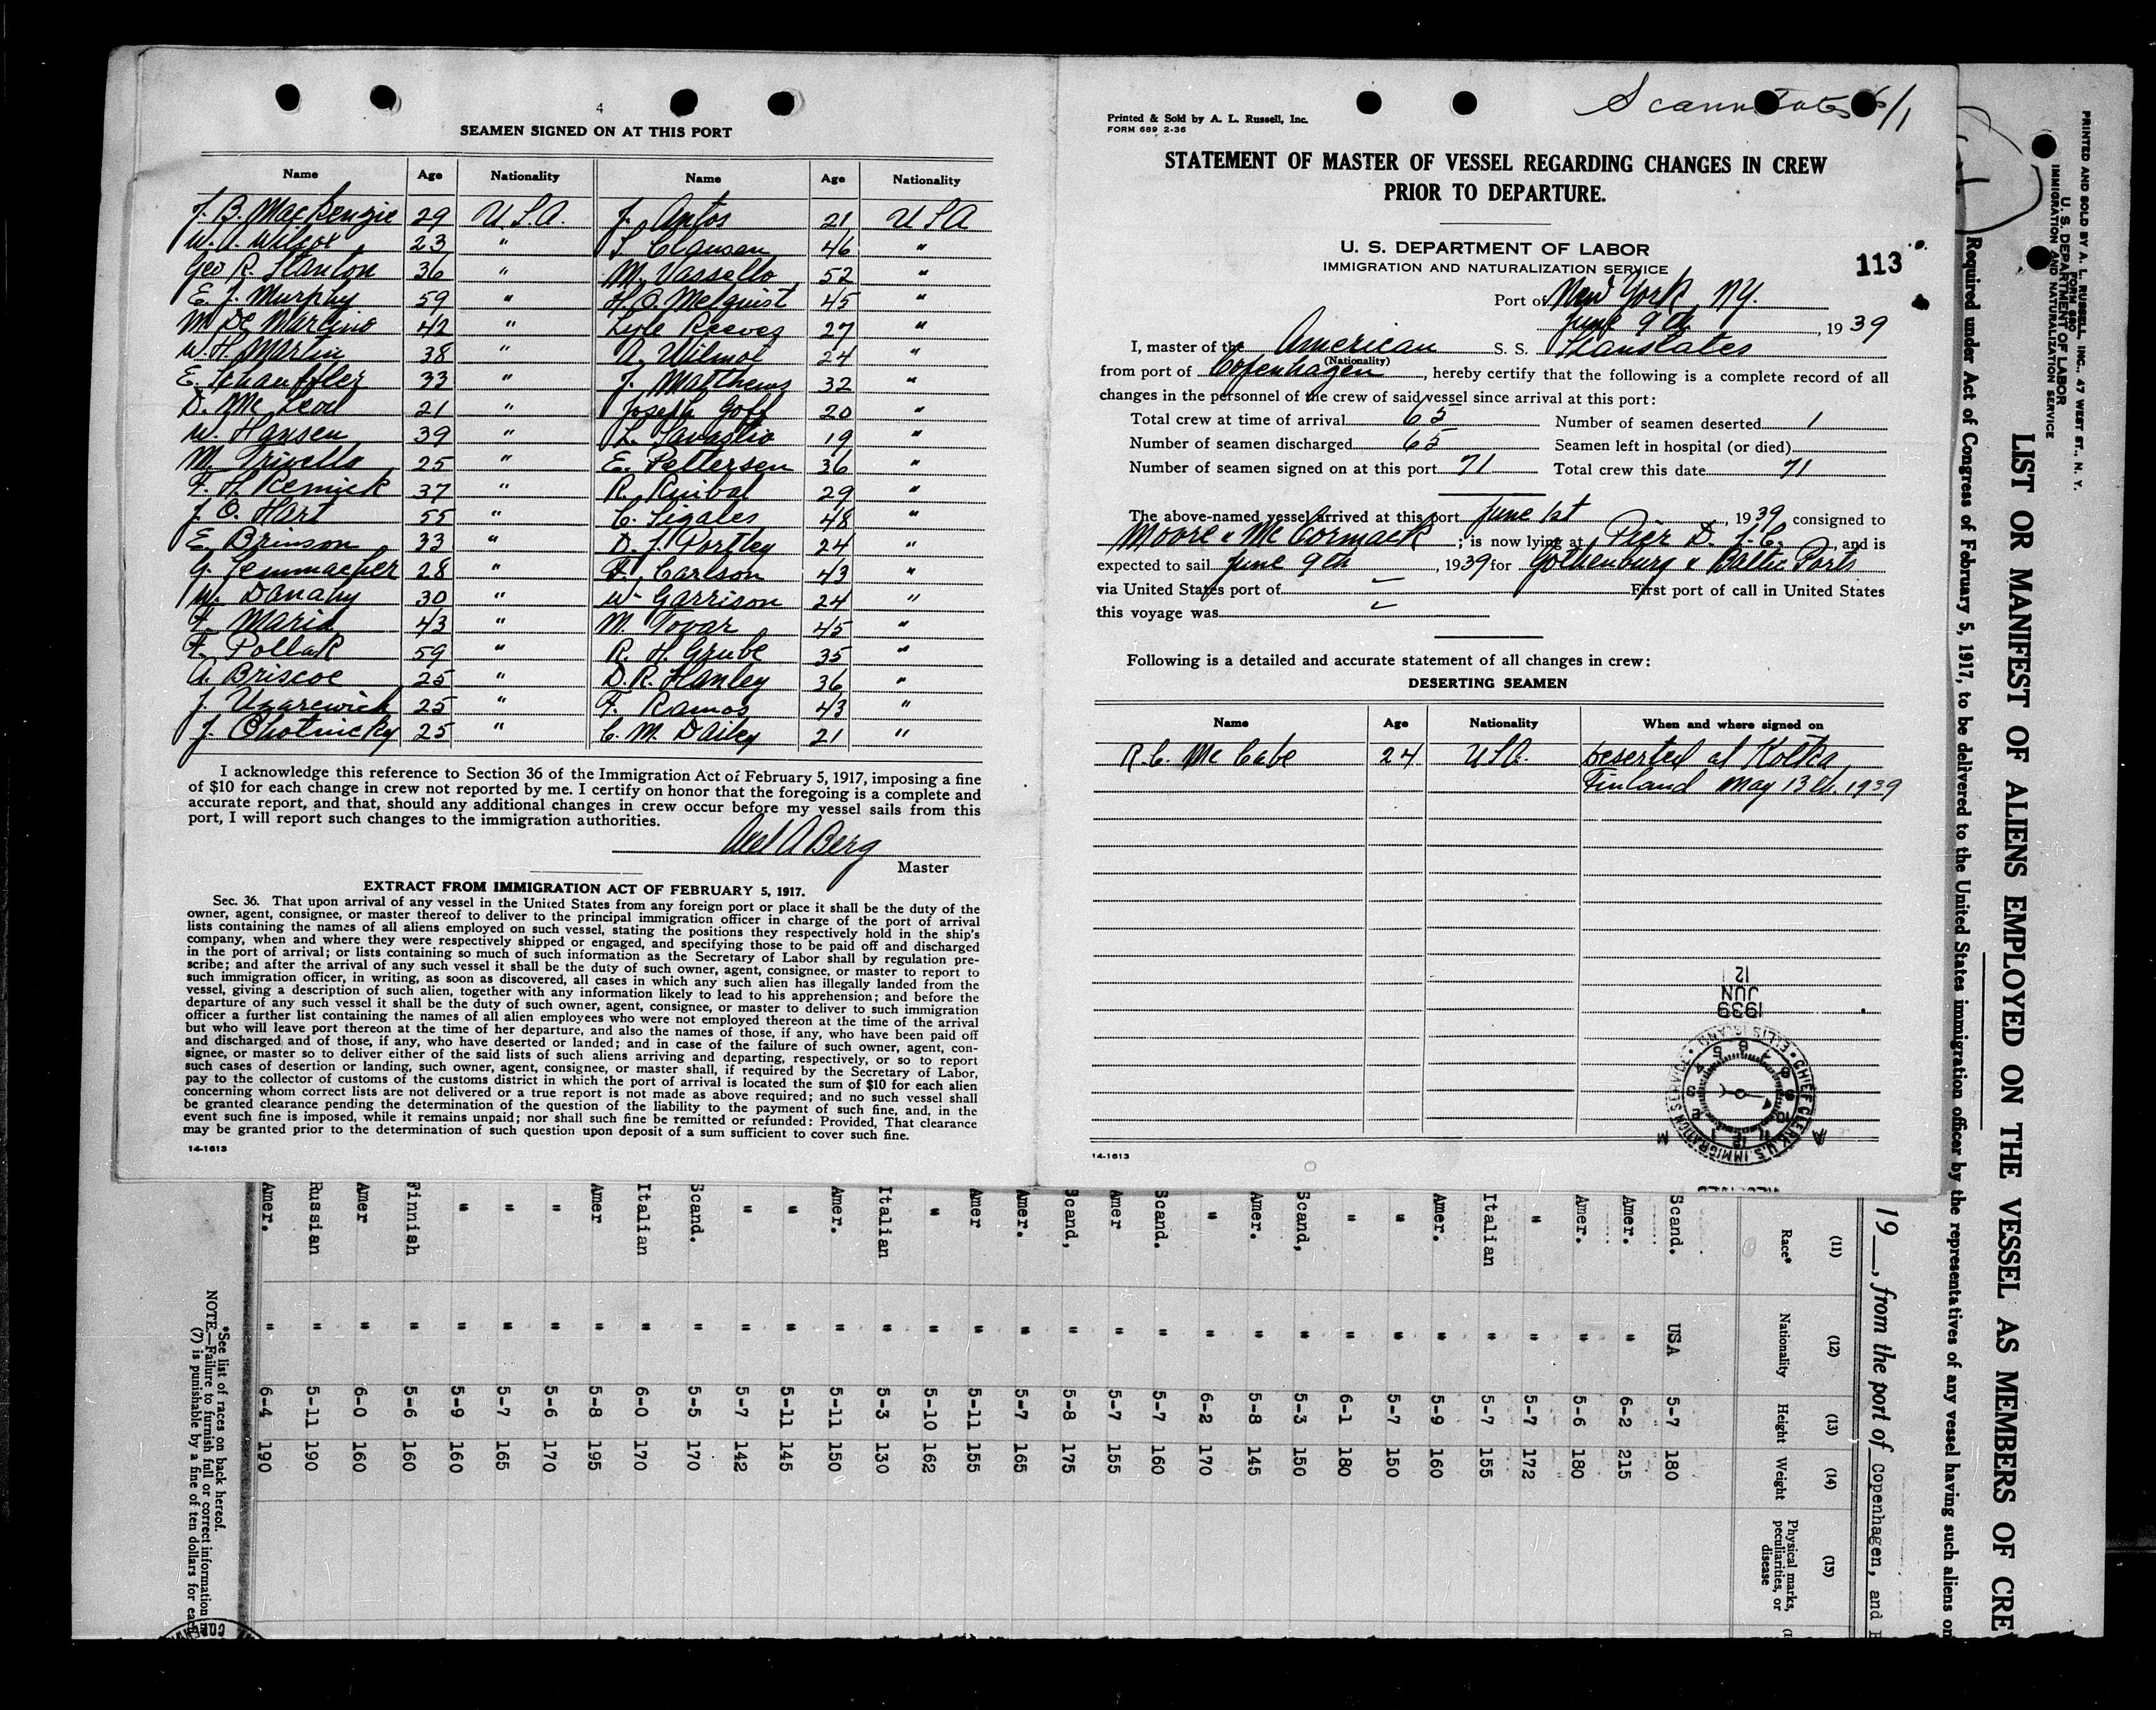 4
SEAMEN SIGNED ON AT THIS PORT
Name Age Nationality Name Age Nationality
J. B. MacKenzie 29 U.S.A. J. Antos 21 U S A
W. A. Wilcox 23 " S Clausen 46 "
Geo R. Stanton 36 " M. Vassello 52 "
E. J. Murphy 59 " H. O. Melquist 45 "
M De Marcino 42 " Lyle Reeves 27 "
W. H. Martin 38 " A. Wilmot 24 "
E. Schauffler 33 " J. Matthews 32 "
D. Mc Leod 21 " Joseph Goff 20 "
W. Hansen 39 " L. Savastio 19 "
M. Trivella 25 " E. Pettersen 36 "
F. H. Remick 37 " R. 29 "
J. O. Hart 55 " C. Sigales 48 "
E. Brinson 33 " D. J. Portley 24 "
G. 28 " F. Carlson 43 "
W. Danahy 30 " W. Garrison 24 "
F. Maria 43 " M. Tovar 45 "
F. Pollak 59 " R. H. Grube 35 "
A. Briscoe 25 " D. R. Hanley 36 "
J. Uzarewich 25 " F. Ramos 43 "
J. Chotnicky 25 " C. M. Dailey 21 "
I acknowledge this reference to Section 36 of the Immigration Act of February 5, 1917, imposing a fine
of $10 for each change in crew not reported by me. I certify on honor that the foregoing is a complete and
accurate report, and that, should any additional changes in crew occur before my vessel sails from this
port, I will report such changes to the immigration authorities.
Axel A Berg
Master
EXTRACT FROM IMMIGRATION ACT OF FEBRUARY 5, 1917.
Sec. 36. That upon arrival of any vessel in the United States from any foreign port or place it shall be the duty of the
owner, agent, consignee, or master thereof to deliver to the principal immigration officer in charge of the port of arrival
lists containing the names of all aliens employed on such vessel, stating the positions they respectively hold in the ship's
company, when and where they were respectively shipped or engaged, and specifying those to be paid off and discharged
in the port of arrival; or lists containing so much of such information as the Secretary of Labor shall by regulation pre-
scribe; and after the arrival of any such vessel it shall be the duty of such owner, agent, consignee, or master to report to
such immigration officer, in writing, as soon as discovered, all cases in which any such alien has illegally landed from the
vessel, giving a description of such alien, together with any information likely to lead to his apprehension; and before the
departure of any such vessel it shall be the duty of such owner, agent, consignee, or master to deliver to such immigration
officer a further list containing the names of all alien employees who were not employed thereon at the time of the arrival
but who will leave port thereon at the time of her departure, and also the names of those, if any, who have been paid off
and discharged and of those, if any, who have deserted or landed; and in case of the failure of such owner, agent, con-
signee, or master so to deliver either of the said lists of such aliens arriving and departing, respectively, or so to report
such cases of desertion or landing, such owner, agent, consignee, or master shall, if required by the Secretary of Labor,
pay to the collector of customs of the customs district in which the port of arrival is located the sum of $10 for each alien
concerning whom correct lists are not delivered or a true report is not made as above required; and no such vessel shall
be granted clearance pending the determination of the question of the liability to the payment of such fine, and, in the
event such fine is imposed, while it remains unpaid; nor shall such fine be remitted or refunded: Provided, That clearance
may be granted prior to the determination of such question upon deposit of a sum sufficient to cover such fine.
14-1613
Scanstates 6/1
Printed & Sold by A. L. Russell, Inc.
FORM 689 2-36
STATEMENT OF MASTER OF VESSEL REGARDING CHANGES IN CREW
PRIOR TO DEPARTURE.
U. S. DEPARTMENT OF LABOR
IMMIGRATION AND NATURALIZATION SERVICE
113
Port of New York, NY.
June 9th, 1939
I, master of the American S. S. Scanstates
(Nationality)
from port of Copenhagen, hereby certify that the following is a complete record of all
changes in the personnel of the crew of said vessel since arrival at this port:
Total crew at time of arrival 65 Number of seamen deserted 1
Number of seamen discharged 65 Seamen left in hospital (or died)
Number of seamen signed on at this port 71 Total crew this date 71
The above-named vessel arrived at this port June 1st, 1939 consigned to
Moore & Mc Cormack; is now lying at Pier D. J. C., and is
expected to sail June 9th, 1939 for Gothenburg & Baltic Ports
via United States port of First port of call in United States
this voyage was
Following is a detailed and accurate statement of all changes in crew:
DESERTING SEAMEN
Name Age Nationality When and where signed on
R. C. Mc Cabe 24 U.S.A. Deserted at Kotka
Finland May 13th. 1939
1939
JUN
12
CHIEF CLERK U.S. IMMIGRATION SERVICE • ELLIS ISLAND •
A M
14-1613
PRINTED AND SOLD BY A. L. RUSSELL, INC., 47 WEST ST., N. Y.
FORM 680
U. S. DEPARTMENT OF LABOR
IMMIGRATION AND NATURALIZATION SERVICE
LIST OR MANIFEST OF ALIENS EMPLOYED ON THE VESSEL AS MEMBERS OF CRE
Required under Act of Congress of February 5, 1917, to be delivered to the United States immigration officer by the representatives of any vessel having such aliens on
19__, from the port of Copenhagen, and
(11) (12) (13) (14) (15)
Race* Nationality Height Weight Physical marks, peculiarities, or disease
Scand. USA 5-7 180
Amer. " 6-2 215
Amer. " 5-6 180
" " 5-7 172
Italian " 5-7 155
Amer. " 5-9 160
" " 5-7 150
" " 6-1 180
Scand, " 5-3 150
Amer. " 5-8 145
" " 6-2 170
Scand. " 5-7 160
Amer " 5-7 155
Scand, " 5-8 175
Amer. " 5-7 165
Amer " 5-11 155
" " 5-10 162
Italian " 5-3 130
Amer. " 5-11 150
" " 5-11 145
" " 5-7 142
Scand. " 5-5 170
Italian " 6-0 170
Amer " 5-8 195
" " 5-6 170
" " 5-7 165
" " 5-9 160
Finnish " 5-6 160
Amer " 6-0 160
Russian " 5-11 190
Amer. " 6-4 190
*See list of races on back hereof.
NOTE.—Failure to furnish full or correct information
(7) is punishable by a fine of ten dollars for each